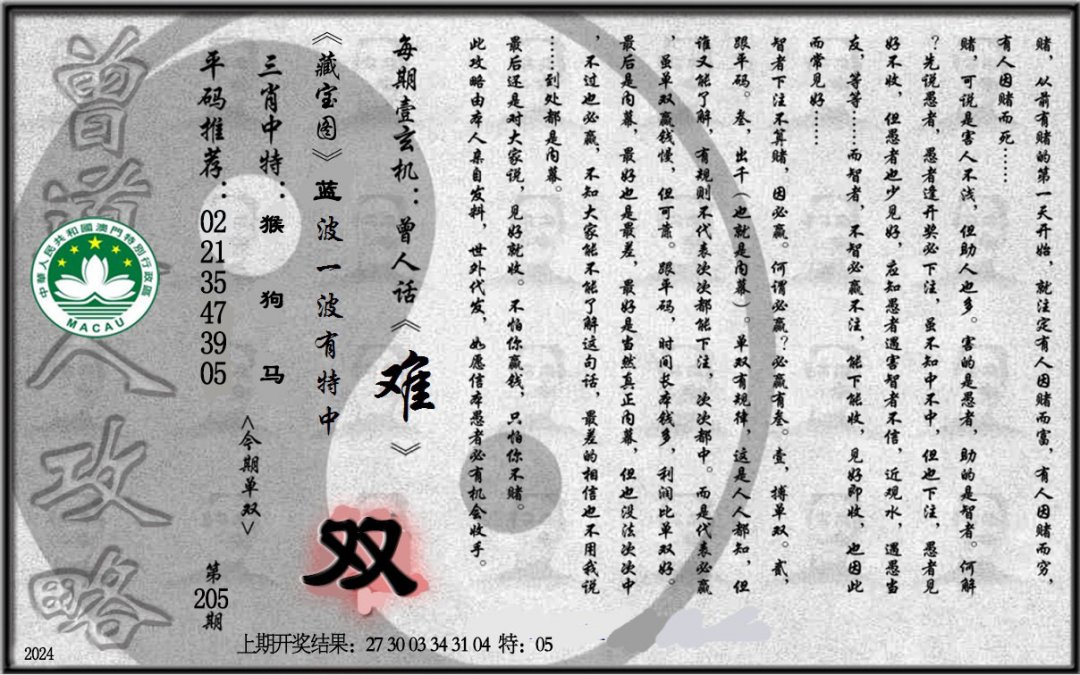 赌，从前有赌的第一天开始，就注定有人因赌而富，有人因赌而穷，
有人因赌而死……
赌，可说是害人不浅，但助人也多。害的是愚者，助的是智者。何解
？先说愚者，愚者逢开奖必下注，虽不知中不中，但也下注，愚者见
好不收，但愚者也少见好，应知愚者遇害智者不信，近观水，遇愚当
友，等等……而智者，不智必赢不注，能下能收，见好即收，也因此
而常见好……
智者下注不算赌，因必赢。何谓必赢？必赢有叁。壹，搏单双。贰，
跟平码。叁，出千（也就是内幕）。单双有规律，这是人人都知，但
谁又能了解，有规则不代表次次都能下注，次次都中。而是代表必赢
，虽单双赢钱慢，但可靠。跟平码，时间长本钱多，利润比单双好。
最后是内幕，最好也是最差，最好是当然真正内幕，但也没法次次中
，不过也必赢，不知大家能不能了解这句话，最差的相信也不用我说
……到处都是内幕。
最后还是对大家说，见好就收。不怕你赢钱，只怕你不赌。
此攻略由本人亲自发料，世外代发，如愿信本愚者必有机会收手。
每期壹玄机：曾人话《难》
《藏宝图》蓝波一波有特中
双
三肖中特：猴 狗 马
<今期单双>
平码推荐：02 21 35 47 39 05
第205期
曾道人攻略
中華人民共和國澳門特別行政區
MACAU
上期开奖结果：27 30 03 34 31 04 特：05
2024